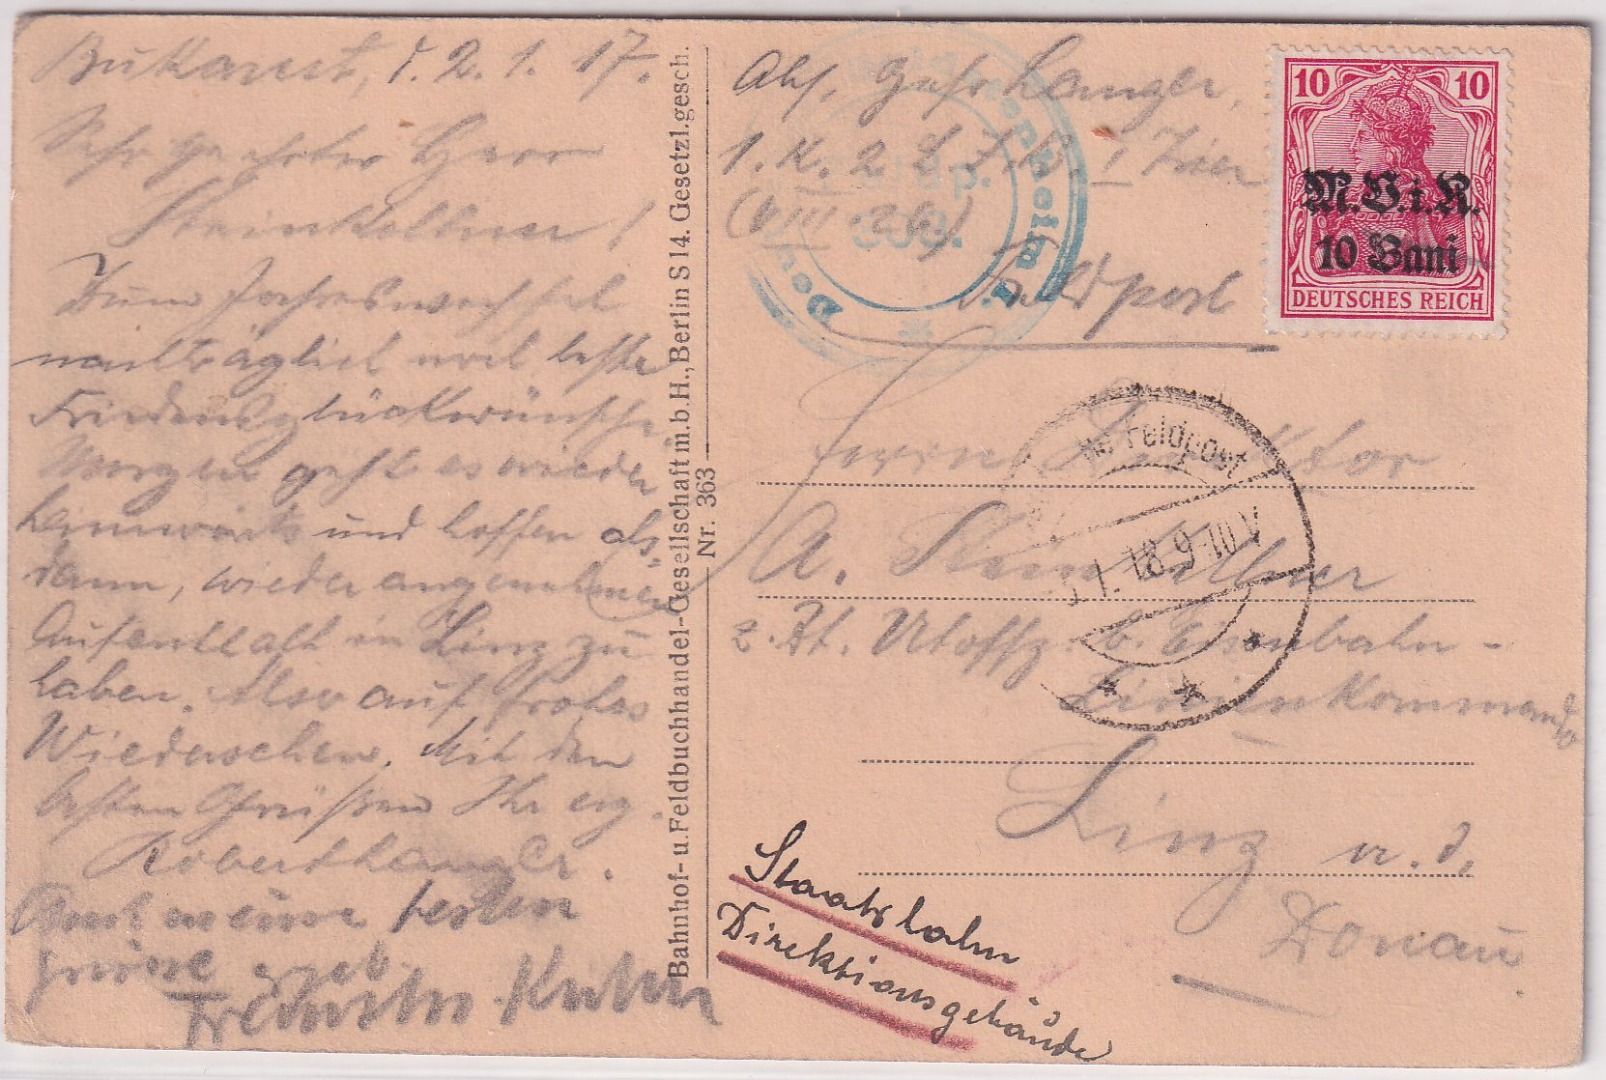 Bukarest, d. 2. 1. 17.
Sehr geehrter Herr
Steinkellner!
Zum Jahreswechsel
nachträglich noch beste
Friedensglückwünsche.
Morgen geht es wieder
heimwärts und hoffen als-
dann, wieder angenehmen
Aufenthalt in Linz zu
haben. Also auf frohes
Wiedersehen. Mit den
besten Grüßen Ihr erg.
Robert Langer.
Auch meine besten
Grüsse
Bahnhof- u. Feldbuchhandel-Gesellschaft m.b.H., Berlin S 14. Gesetzl. gesch.
Nr. 363
Abs. Gefr. Langer,
1. K. 2. L. I. B.
Feldpost
308.
10 10
M.V.i.R.
10 Bani
DEUTSCHES REICH
Feldpost
1. 18. 6-7
Herrn Direktor
A. Steinkellner
z. Zt. Utoffz. b. Eisenbahn-
Linienkommando
Linz a. d.
Donau
Staatsbahn
Direktionsgebäude